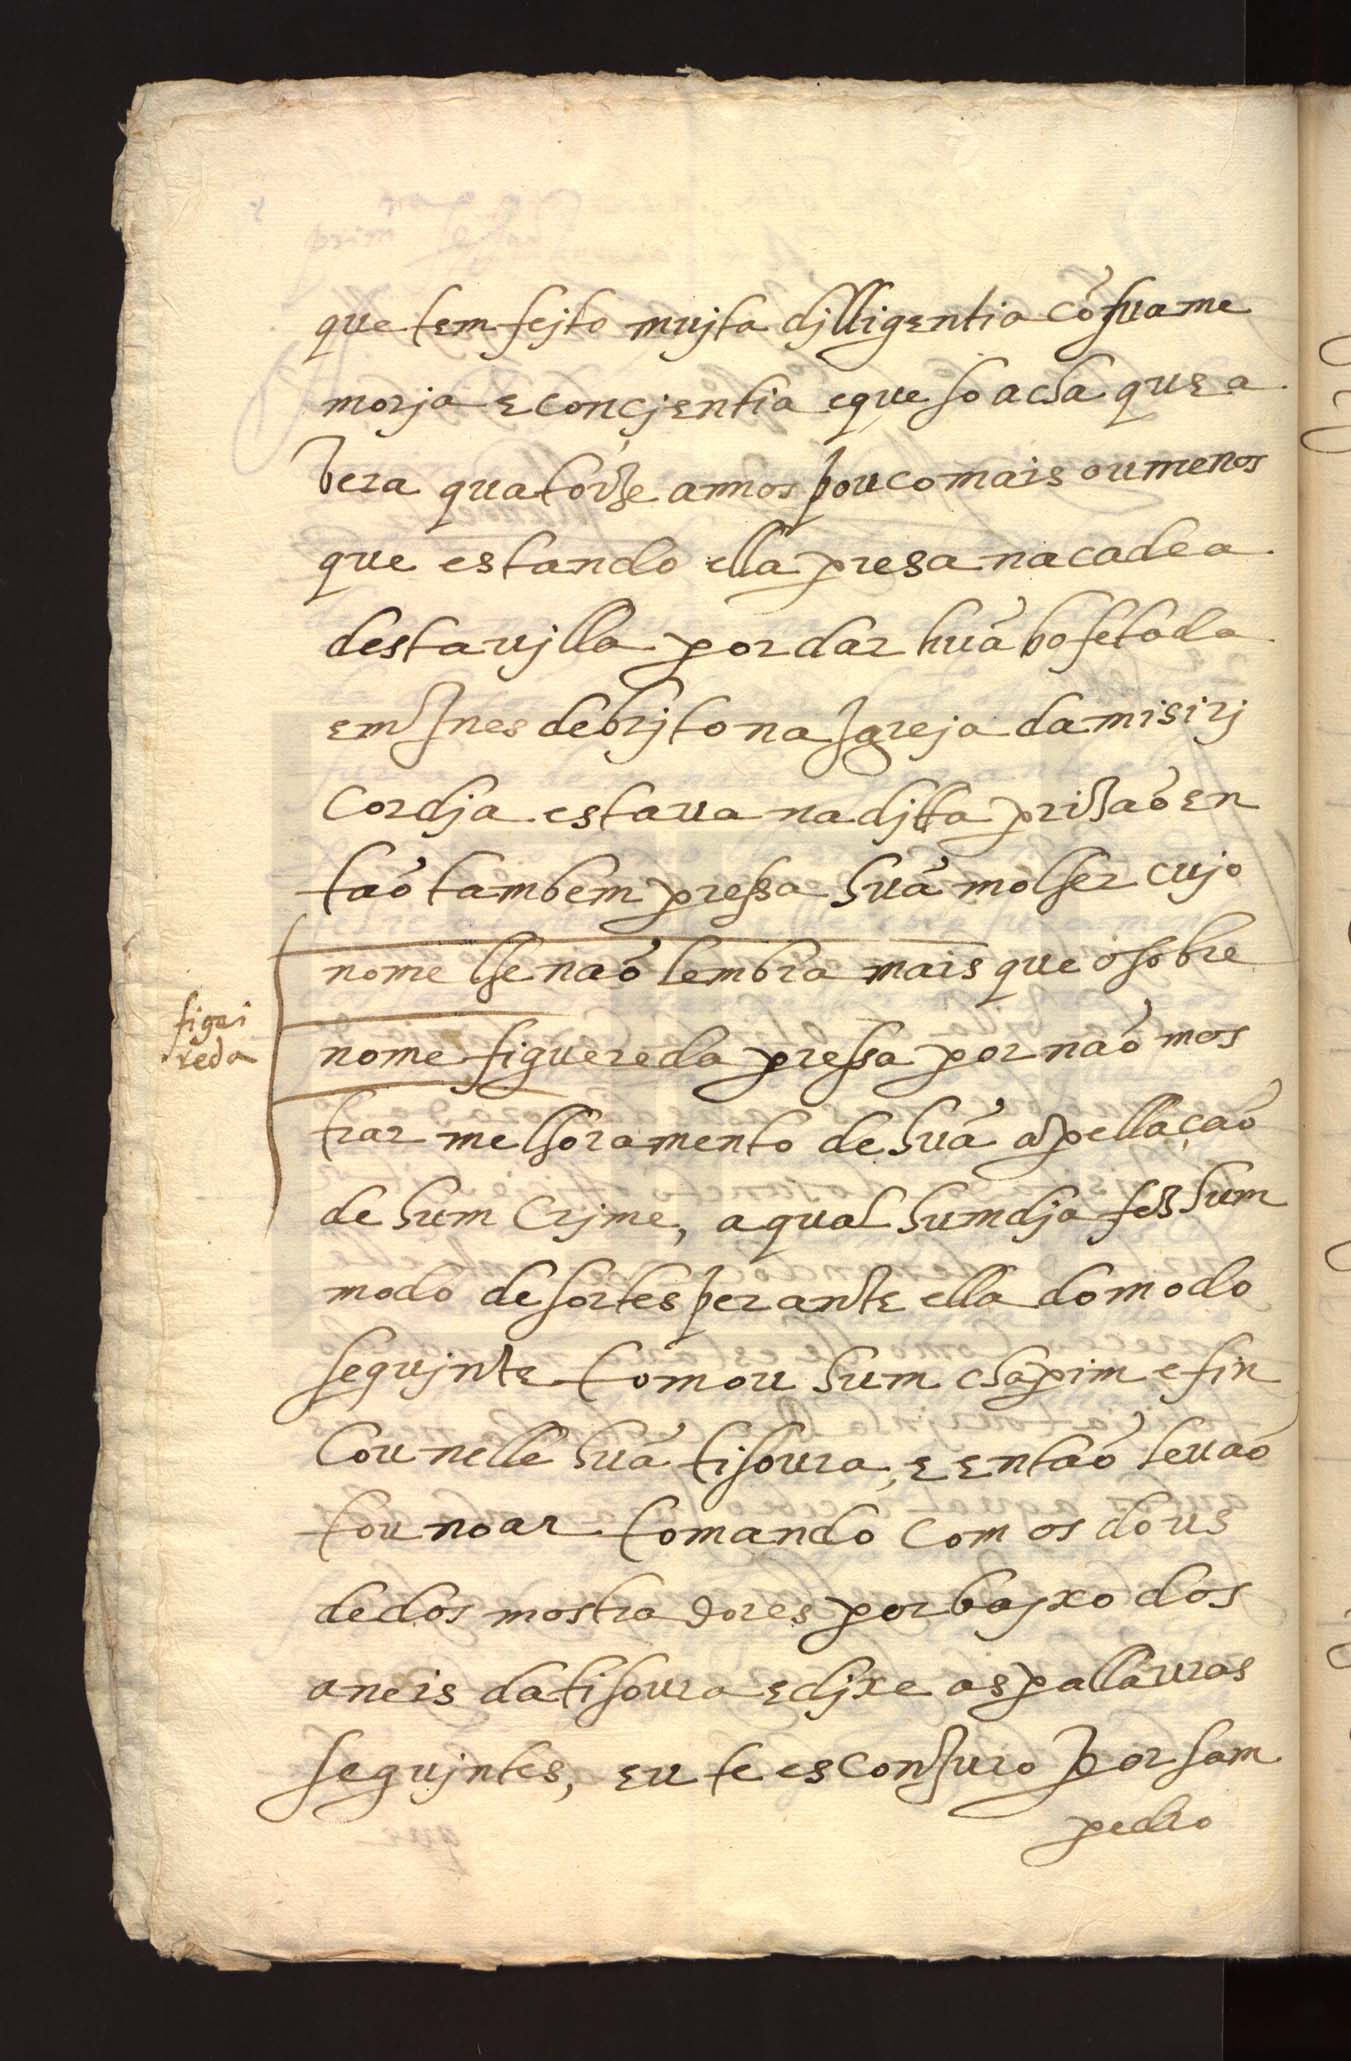 que tem fejto mujta djlligentia cõ sua me
morja e concjentia e que so acha que a
vera quatorze annos pouco mais ou menos
que estando ella presa na cadea
desta vjlla por dar huã bofetada
em Ines de brjto na Igreja da misirj
cordja estava na djta prizaõ en
taõ tambem pressa huã molher cujo
nome lhe naõ lembra mais que o sobre
nome figuereda pressa por naõ mos
figei
reda
trar melhoramento de huã apellaçaõ
de hum crjme, a qual hum dja fes hum
modo de sortes perante ella do modo
segujnte tomou hum chapim e fin
cou nelle huã tisoura, e entaõ levaõ
tou no ar tomando com os dous
dedos mostradores por bajxo dos
aneis da tisoura e djxe as pallavras
segujntes, eu te esconjuro por sam
pedro